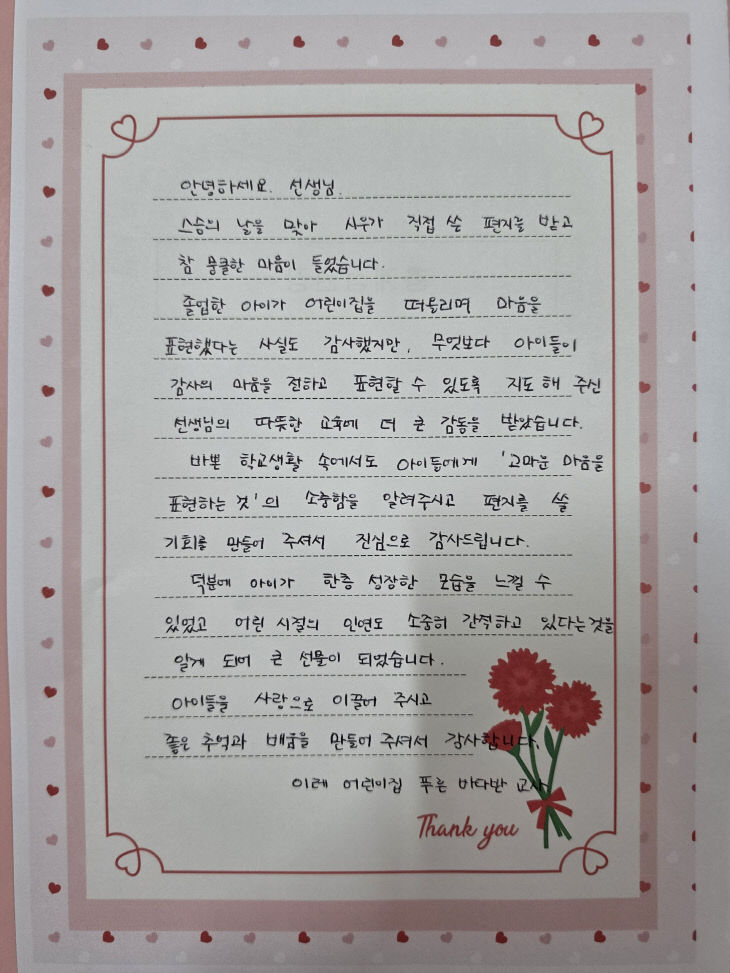 안녕하세요. 선생님.
스승의 날을 맞아 시우가 직접 쓴 편지를 받고
참 뭉클한 마음이 들었습니다.
졸업한 아이가 어린이집을 떠올리며 마음을
표현했다는 사실도 감사했지만, 무엇보다 아이들이
감사의 마음을 전하고 표현할 수 있도록 지도해 주신
선생님의 따뜻한 교육에 더 큰 감동을 받았습니다.
바쁜 학교생활 속에서도 아이들에게 '고마운 마음을
표현하는 것'의 소중함을 알려주시고 편지를 쓸
기회를 만들어 주셔서 진심으로 감사드립니다.
덕분에 아이가 한층 성장한 모습을 느낄 수
있었고 어린 시절의 인연도 소중히 간직하고 있다는것을
알게 되어 큰 선물이 되었습니다.
아이들을 사랑으로 이끌어 주시고
좋은 추억과 배움을 만들어 주셔서 감사합니다.
이레 어린이집 푸른 바다반 교사
Thank you